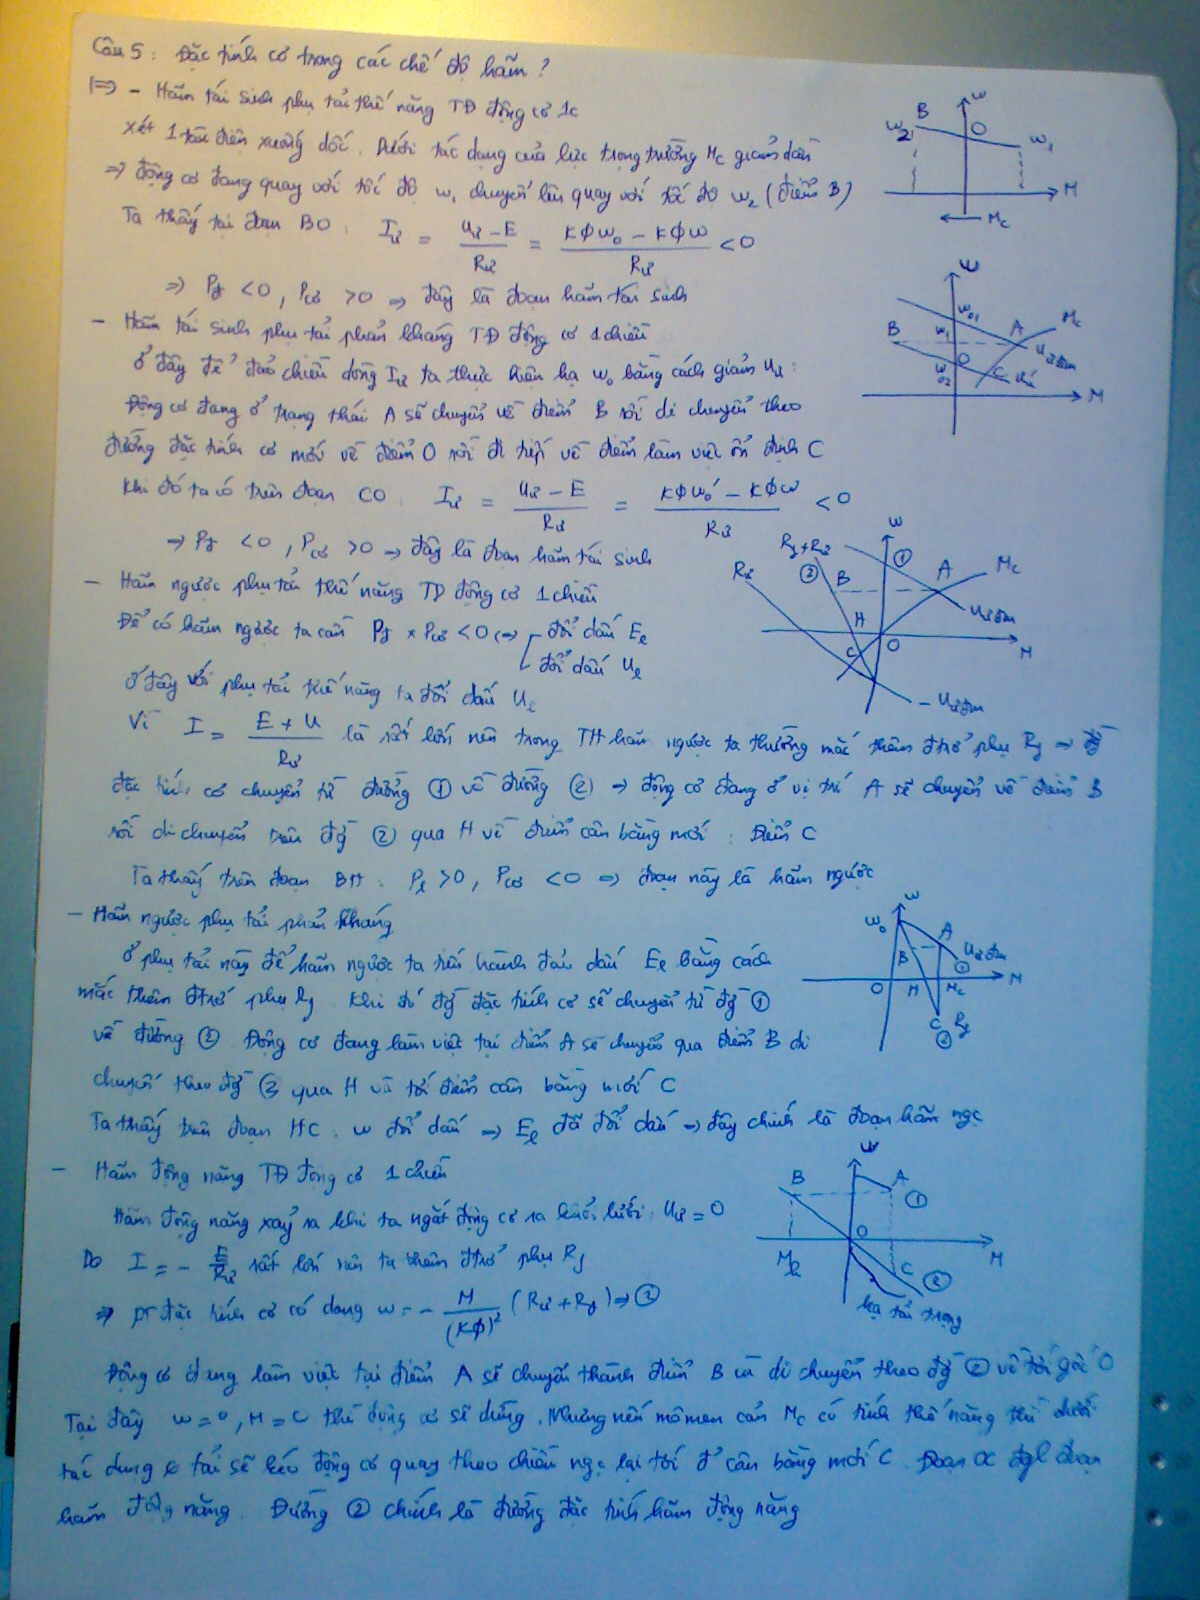 Câu 5: Đặc tính cơ trong các chế độ hãm?
|=> - Hãm tái sinh phụ tải thế năng TĐ động cơ 1c
xét 1 tàu điện xuống dốc. Dưới tác dụng của lực trọng trường Mc giảm dần
=> động cơ đang quay với tốc độ w1 chuyển lên quay với tốc độ w2 (điểm B)
Ta thấy tại đoạn BO: Iư = (Uư - E)/Rư = (KΦw0 - KΦw)/Rư < 0
=> Pđ < 0, Pcơ > 0 => đây là đoạn hãm tái sinh
- Hãm tái sinh phụ tải phản kháng TĐ động cơ 1 chiều
Ở đây để đảo chiều dòng Iư ta thực hiện hạ w0 bằng cách giảm Uư:
Động cơ đang ở trạng thái A sẽ chuyển về điểm B rồi di chuyển theo
đường đặc tính cơ mới về điểm O rồi đi tiếp về điểm làm việc ổn định C
Khi đó ta có trên đoạn CO: Iư = (Uư - E)/Rư = (KΦw0' - KΦw)/Rư < 0
=> Pđ < 0, Pcơ > 0 => đây là đoạn hãm tái sinh
- Hãm ngược phụ tải thế năng TĐ động cơ 1 chiều
Để có hãm ngược ta cần Pđ × Pcơ < 0 <=> [ đổi dấu El
đổi dấu Ul
Ở đây với phụ tải thế năng ta đổi dấu Ul
Vì I = (E + U)/Rư là rất lớn nên trong TH hãm ngược ta thường mắc thêm đtrở phụ Rf =>
đặc tính cơ chuyển từ đường ① về đường ② => động cơ đang ở vị trí A sẽ chuyển về điểm B
rồi di chuyển trên đg ② qua H về điểm cân bằng mới: Điểm C
Ta thấy trên đoạn BH: Pl > 0, Pcơ < 0 => đoạn này là hãm ngược
- Hãm ngược phụ tải phản kháng
Ở phụ tải này để hãm ngược ta tiến hành đảo dấu El bằng cách
mắc thêm đtrở phụ Rf. Khi đó đg đặc tính cơ sẽ chuyển từ đg ①
về đường ②. Động cơ đang làm việc tại điểm A sẽ chuyển qua điểm B di
chuyển theo đg ② qua H và tới điểm cân bằng mới C
Ta thấy trên đoạn HC: w đổi dấu => El đã đổi dấu => đây chính là đoạn hãm ngc
- Hãm động năng TĐ động cơ 1 chiều
Hãm động năng xảy ra khi ta ngắt động cơ ra khỏi lưới: Uư = 0
Do I = - E/Rư rất lớn nên ta thêm đtrở phụ Rf
=> pt đặc tính cơ có dạng w = - M/(KΦ)² (Rư + Rf) => ②
Động cơ đang làm việc tại điểm A sẽ chuyển thành điểm B và di chuyển theo đg ② về tới gốc O
Tại đây w = 0, M = 0 thì động cơ sẽ dừng. Nhưng nếu mômen cản Mc có tính thế năng thì dưới
tác dụng tải sẽ kéo động cơ quay theo chiều ngc lại tới đ cân bằng mới C. Đoạn OC đgl đoạn
hãm động năng. Đường ② chính là đường đặc tính hãm động năng
w
B
w2
O
w1
M
Mc
w
w01
Mc
B
w1
A
Uưđm
O
w02
C
M
w
Rf+Rư
①
Rư
②
B
A
Mc
Uưđm
H
O
M
C
-Uưđm
w
w0
A
Uưđm
B
①
O
H
Mc
M
C
Rf
②
w
B
A
①
O
M
C
②
hạ tải trọng